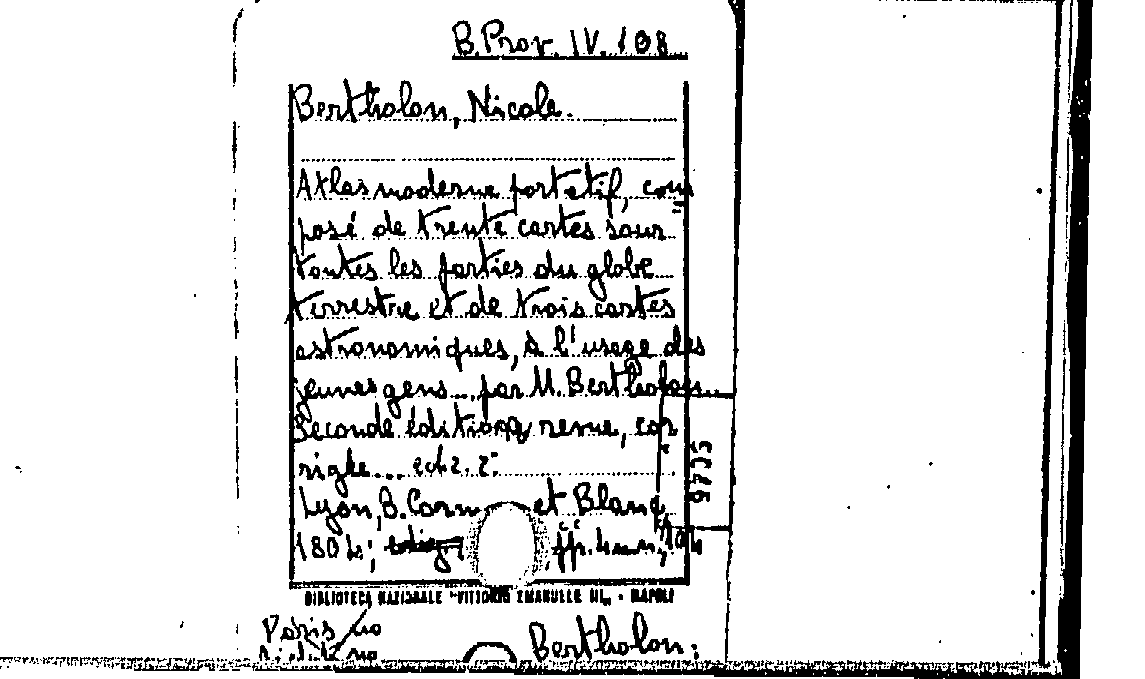 B.Prov. IV. 108
Bertholon, Nicole.
Atlas moderne portatif, com
posé de trente cartes sour
toutes les parties du globe
terrestre et de trois cartes
astronomiques, à l'usage des
jeunes gens... par M. Bertholon...
Seconde édition revue, cor
rigle... ediz. 2ª
Lyon, B. Corm et Blanc
1804;
9735
BIBLIOTECA NAZIONALE "VITTORIO EMANUELE III" - NAPOLI
Paris no
Bertholon: